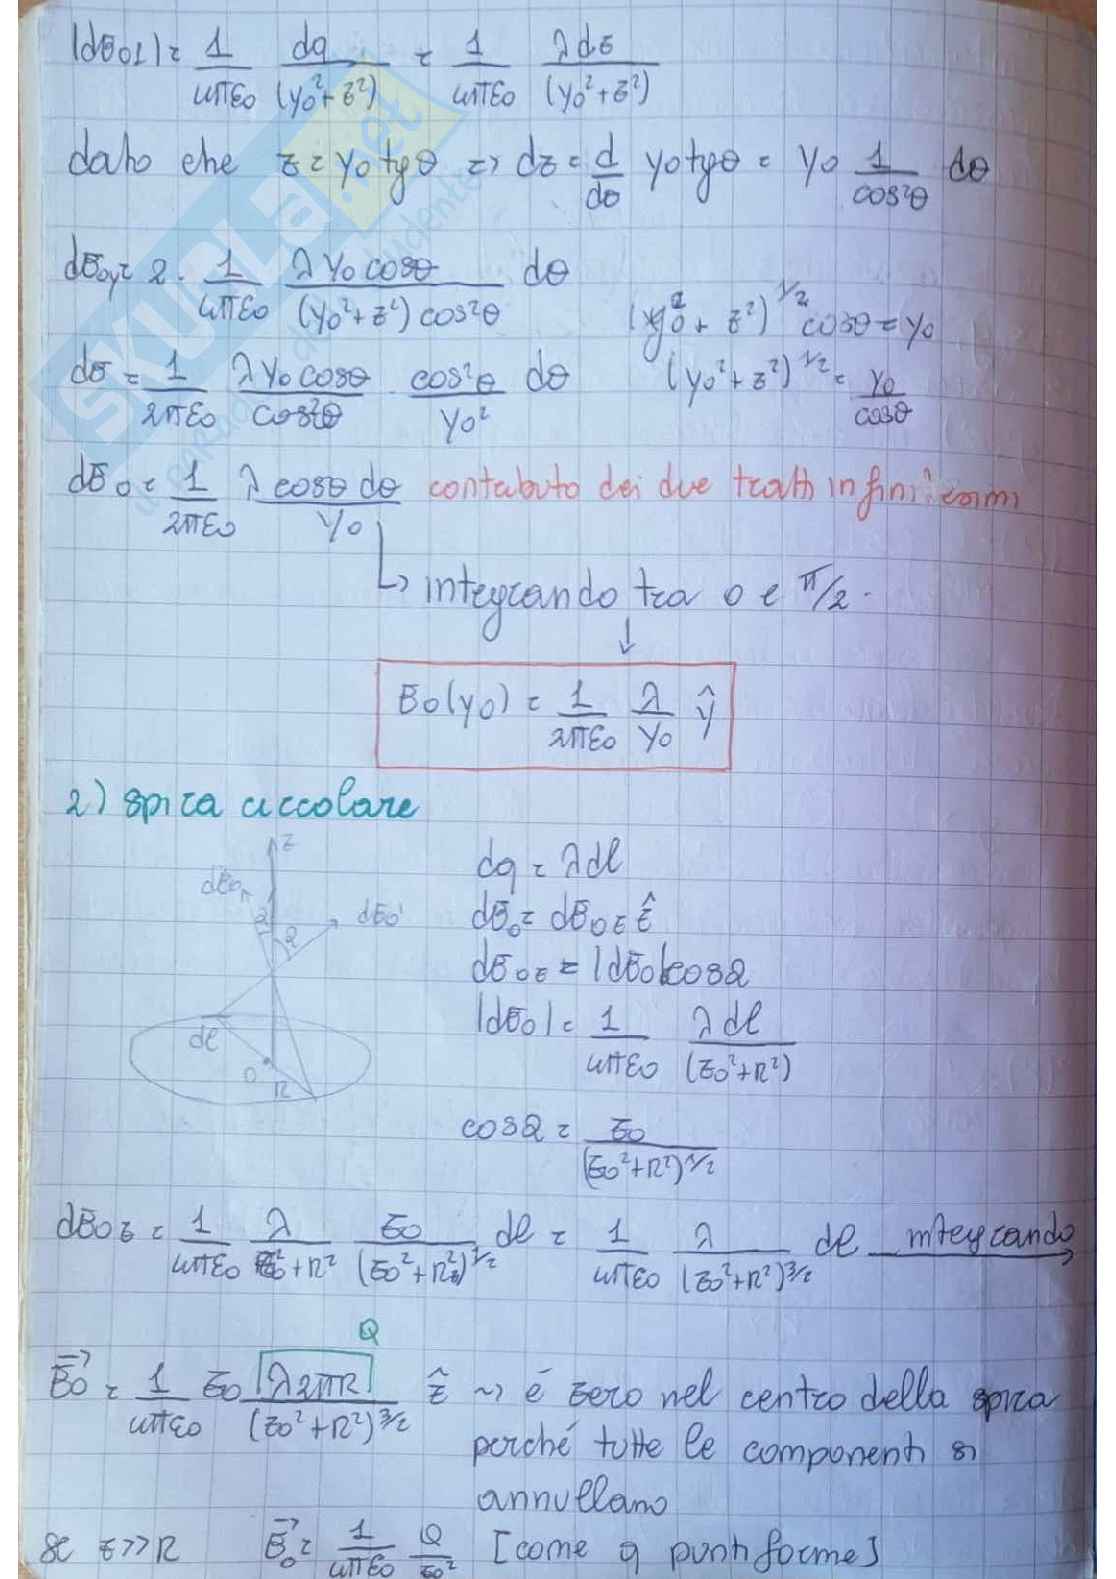 |dE01| = 1/4πε0 dq/(y0²+z²) = 1/4πε0 λdz/(y0²+z²)
dato che z = y0 tgθ => dz = d/dθ y0 tgθ = y0 1/cos²θ dθ
dE0y = 2 · 1/4πε0 λ y0 cosθ/(y0²+z²) cos²θ dθ
(y0² + z²)^1/2 cosθ = y0
dE = 1/2πε0 λ y0 cosθ/cos²θ · cos²θ/y0² dθ
(y0² + z²)^1/2 = y0/cosθ
dE0 = 1/2πε0 λ cosθ dθ/y0 contributo dei due tratti infinitesimi
↳ integrando tra 0 e π/2.
↓
E0(y0) = 1/2πε0 λ/y0 ŷ
2) spira circolare
z
dE0
α
α
dE0'
dl
O
R
dq = λdl
dE0 = dE0z ẑ
dE0z = |dE0|cosα
|dE0| = 1/4πε0 λ dl/(z0²+R²)
cosα = z0/(z0²+R²)^1/2
dE0z = 1/4πε0 λ/z0²+R² z0/(z0²+R²)^1/2 dl = 1/4πε0 λ/(z0²+R²)^3/2 dl integrando
Q
E0 = 1/4πε0 z0 λ2πR/(z0²+R²)^3/2 ẑ ~> é zero nel centro della spira
perché tutte le componenti si
annullano
se z>>R E0 = 1/4πε0 Q/z0² [come q puntiforme]
SKUOLA.net